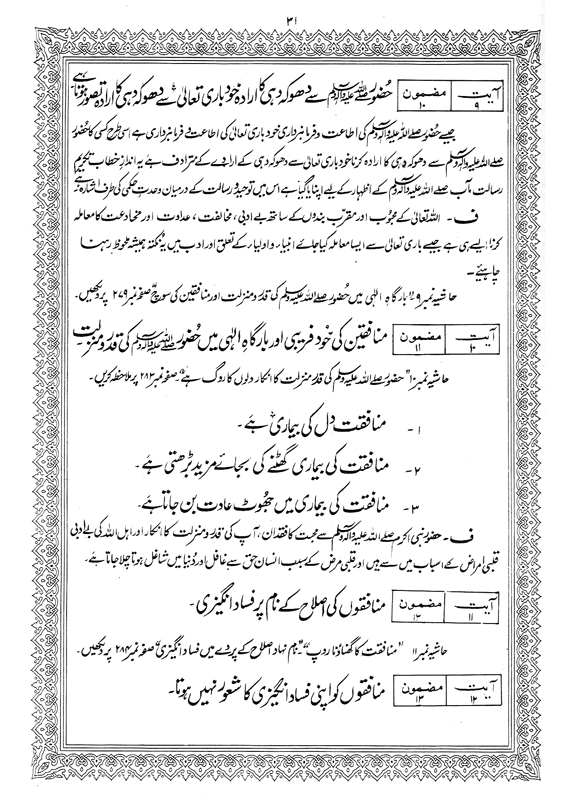 ۳۱
آیت ۹ مضمون ۱۰ حضور ﷺ سے دھوکہ دہی کا ارادہ خود باری تعالیٰ سے دھوکہ دہی کا ارادہ تصور ہوتا ہے
جیسے حضور صلی اللہ علیہ وآلہ وسلم کی اطاعت و فرمانبرداری خود باری تعالیٰ کی اطاعت و فرمانبرداری ہے اسی طرح کسی کا حضور
صلی اللہ علیہ وآلہ وسلم سے دھوکہ دہی کا ارادہ کرنا خود باری تعالیٰ سے دھوکہ دہی کے ارادے کے مترادف ہے یہ انداز خطاب تکریم
رسالت مآب صلی اللہ علیہ وآلہ وسلم کے اظہار کے لیے اپنایا گیا ہے اس میں توحید و رسالت کے درمیان وحدتِ حکمی کی طرف اشارہ ہے
ف۔ اللہ تعالیٰ کے محبوب اور مقرب بندوں کے ساتھ بے ادبی، مخالفت، عداوت اور مخادعت کا معاملہ
کرنا ایسے ہی ہے جیسے باری تعالیٰ سے ایسا معاملہ کیا جائے انبیاء و اولیاء کے تعلق اور ادب میں یہ نکتہ ہمیشہ ملحوظ رہنا
چاہیئے۔
حاشیہ نمبر ۹ "بارگاہِ الٰہی میں حضور صلی اللہ علیہ وآلہ وسلم کی قدر و منزلت اور منافقین کی سوچ" صفحہ نمبر ۲۷۹ پر دیکھیں۔
آیت ۱۰ مضمون ۱۱ منافقین کی خود فریبی اور بارگاہِ الٰہی میں حضور ﷺ کی قدر و منزلت
حاشیہ نمبر ۱۰ "حضور صلی اللہ علیہ وآلہ وسلم کی قدر و منزلت کا انکار دلوں کا روگ ہے" صفحہ نمبر ۲۸۲ پر ملاحظہ کریں۔
۱۔ منافقت دل کی بیماری ہے۔
۲۔ منافقت کی بیماری گھٹنے کی بجائے مزید بڑھتی ہے۔
۳۔ منافقت کی بیماری میں جھوٹ عادت بن جاتا ہے۔
ف۔ حضور نبی اکرم صلی اللہ علیہ وآلہ وسلم سے محبت کا فقدان، آپ کی قدر و منزلت کا انکار اور اہل اللہ کی بے ادبی
قلبی امراض کے اسباب میں سے ہیں اور قلبی مرض کے سبب انسان حق سے غافل اور دُنیا میں شاغل ہوتا چلا جاتا ہے۔
آیت ۱۱ مضمون ۱۲ منافقوں کی اصلاح کے نام پر فساد انگیزی۔
حاشیہ نمبر ۱۱ "منافقت کا گھناؤنا روپ" "نام نہاد اصلاح کے پردے میں فساد انگیزی" صفحہ نمبر ۲۸۴ پر دیکھیں۔
آیت ۱۲ مضمون ۱۳ منافقوں کو اپنی فساد انگیزی کا شعور نہیں ہوتا۔